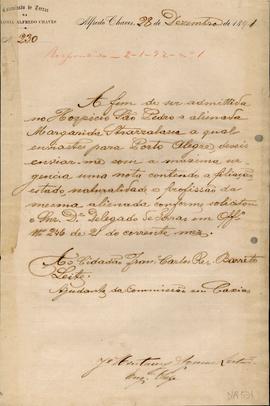 Commissão de Terras
NA
COLONIA ALFREDO CHAVES
Nº 230
Alfredo Chaves, 28 de Dezembro de 1891
Respondido - 2-1-92 - nº 1
A fim de ser admittida
no Hospicio São Pedro a alienada
Margarida a qual
enviastes para Porto Alegre deveis
enviar-me com a maxima ur
gencia uma nota contendo a filiação
estado, naturalidade e profissão da
mesma alienada conforme solicitou
o Snr. Dr. Delegado de Terras em Offº
Nº 246 de 21 do corrente mez.
Ao Cidadão Fran. Carlos Barreto
Leite.
Ajudante da Commissão em Caxias
Engº Chefe